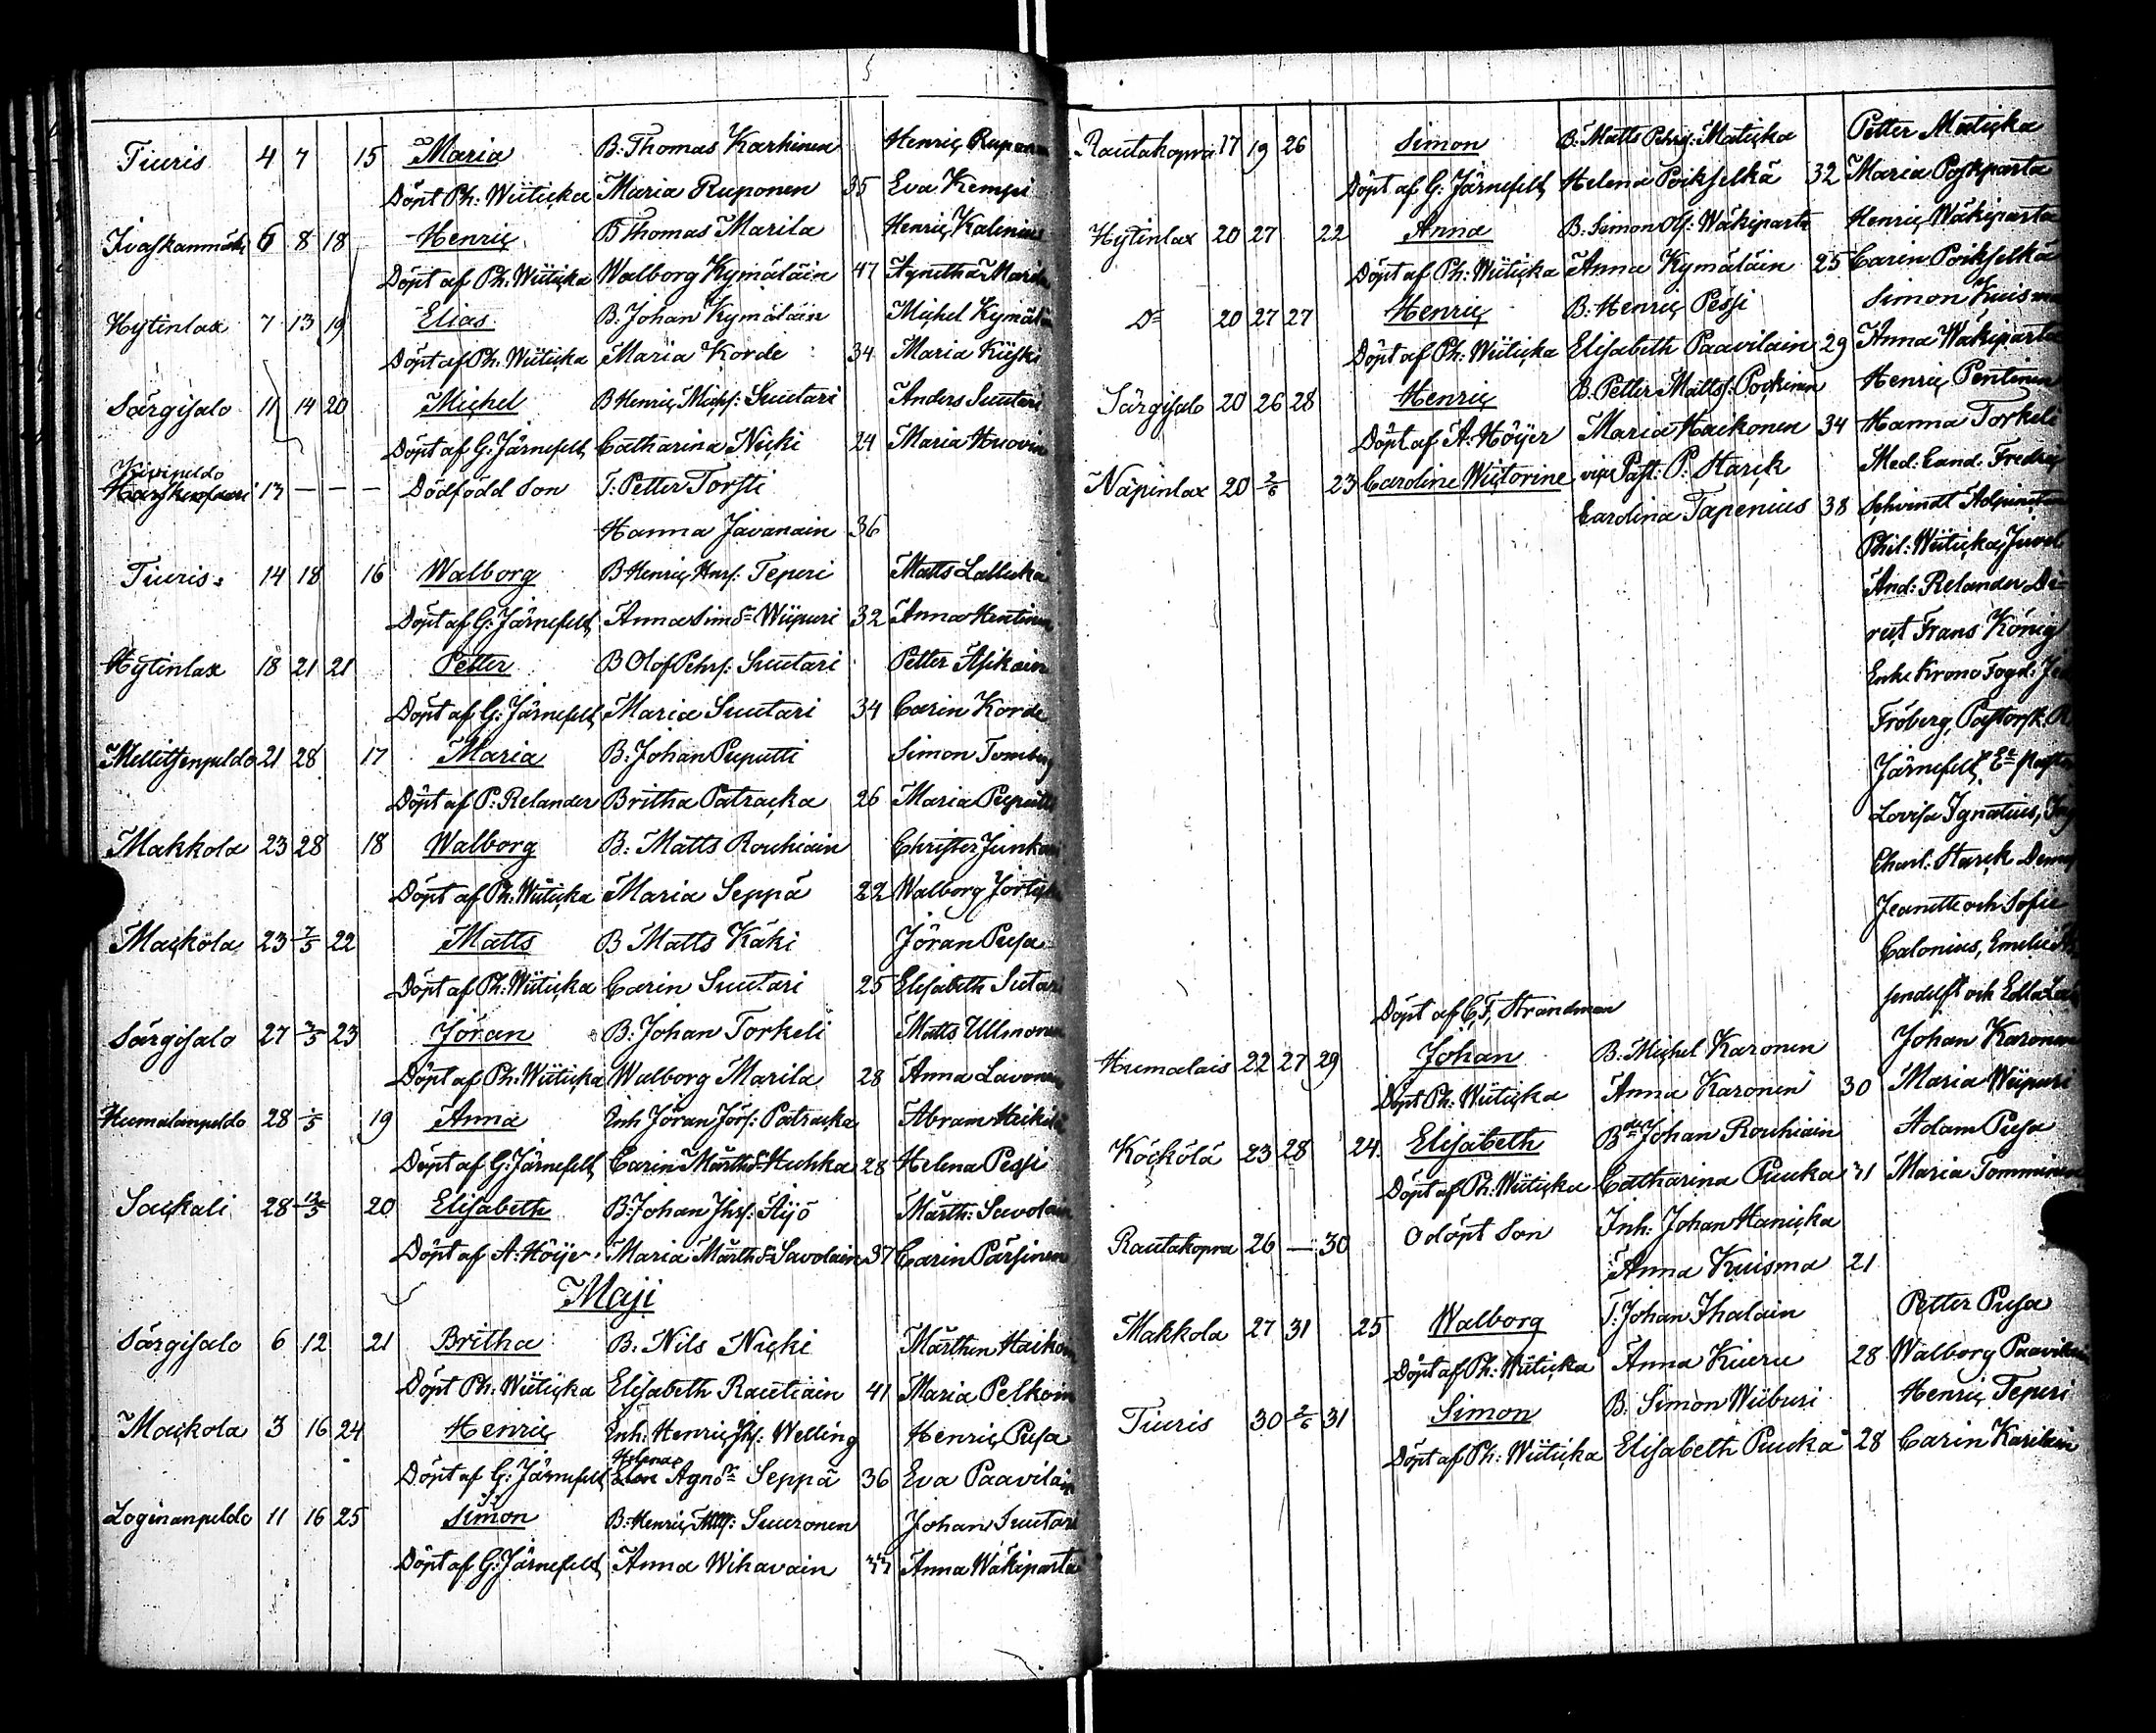 Tiuris 4 7 15 Maria B. Thomas Karhinen Henric Ruponen
Döpt Ph: Wiiticka Maria Ruponen 35 Eva Kempi
6 8 18 Henric B Thomas Marila Henric Kalinin
Döpt af Ph: Wiiticka Walborg Kymäläin 47 Agnetha Marila
Hytinlax 7 13 19 Elias B. Johan Kymäläin Michel Kymälä
Döpt af Ph: Wiiticka Maria Korde 34 Maria Kiiski
Särgisalo 11 14 20 Michel B Henric Michs: Suutari Anders Suutari
Döpt af G: Järnefelt Catharina Nicki 24 Maria Huovin
Kivipeldo
13 — — — Dödfödd Son T: Petter Torsti
Hanna Javanain 36
Tiuris 14 18 16 Walborg B Henric Hnrs: Tepuri Matts Lallucka
Döpt af G: Järnefelt Anna Simsdr Wiipuri 32 Anna Hentinen
Hytinlax 18 21 21 Petter B Olof Pehrs: Suutari Petter Asikain
Döpt af G: Järnefelt Maria Suutari 34 Carin Korde
Mellitsenpeldo 21 28 17 Maria B: Johan Puputti Simon Tomberg
Döpt af P: Relander Britha Patracka 26 Maria Puputti
Makkola 23 28 18 Walborg B: Matts Rouhiain Christer Junkari
Döpt af Ph: Wiiticka Maria Seppä 22 Walborg
Mackola 23 2/5 22 Matts B Matts Käki Jöran Pusa
Döpt af Ph: Wiiticka Carin Suutari 25 Elisabeth Sutari
Särgisalo 27 3/5 23 Jöran B: Johan Torkeli Matts Ullmonen
Döpt af Ph: Wiiticka Walborg Marila 28 Anna Lavonen
Humalanpeldo 28 1/5 19 Anna Inh Jöran Jörs: Patracka Abram Heikilä
Döpt af G: Järnefelt Carin Märthsdr Huhka 28 Helena Pessi
Sackali 28 12/5 20 Elisabeth B: Johan Jhrs: Äijö Märth: Savolain
Döpt af A: Höijer Maria Märthsdr Savolain 37 Carin Pärsinen
Maji
Särgisalo 6 12 21 Britha B. Nils Nicki Märthen Haikon
Döpt Ph: Wiiticka Elisabeth Rautiain 41 Maria Pelkoin
Mackola 3 16 24 Henric Inh: Henric Jhs: Welling Henric Pusa
Helena
Döpt af G: Järnefelt Agnsdr Seppä 36 Eva Paavilain
Loginanpeldo 11 16 25 Simon B: Henric Suuronen Johan Suutari
Döpt af G: Järnefelt Anna Wihavain 33 Anna Wäkiparta
Rautakopra 17 19 26 Simon B: Matts Pehrs: Maticka Petter Maticka
Döpt af G: Järnefelt Helena Poikselkä 32 Maria Poskparta
Hytinlax 20 27 22 Anna B. Simon Ols: Wäkiparta Henric Wäkiparta
Döpt af Ph: Wiiticka Anna Kymäläin 25 Carin Poikselkä
Do 20 27 27 Henric B: Henric Pessi Simon Kuisma
Döpt af Ph: Wiiticka Elisabeth Paavilain 29 Anna Wäkiparta
Särgisalo 20 26 28 Henric B. Petter Mattss: Pockinen Henric Pentinen
Döpt af A: Höijer Maria Haikonen 34 Hanna Torkeli
Näpinlax 20 2/6 23 Carolina Wictorine vice Past: P: Harck Med: Cand. Fredric
Carolina Tapenius 38 Schvindt Adjuncten
Phil: Wiiticka,
And: Relander
Frans König
Enke Krono Fogd:
Fröberg,
Järnefelt,
Lovisa Ignatius,
Charl: Harck
Jeanette och Sofie
Calonius, Emelie
och Edla
Döpt af C, F, Strandman
Humalais 22 27 29 Johan B. Michel Karonen Johan Karonen
Döpt Ph: Wiiticka Anna Karonen 30 Maria Wiipuri
Köckölä 23 28 24 Elisabeth Bde Johan Rouhiain Adam Pusa
Döpt af Ph: Wiiticka Catharina Pucka 31 Maria Tomminen
Rautakopra 26 — 30 Odöpt Son Inh: Johan Hanicka
Anna Kuisma 21
Makkola 27 31 25 Walborg T: Johan Ihalain Petter Pusa
Döpt af Ph: Wiiticka Anna Kuru 28 Walborg Paavilain
Tiuris 30 2/6 31 Simon B. Simon Wiiburi Henric Tepuri
Döpt af Ph: Wiiticka Elisabeth Pucka 28 Carin Karilain